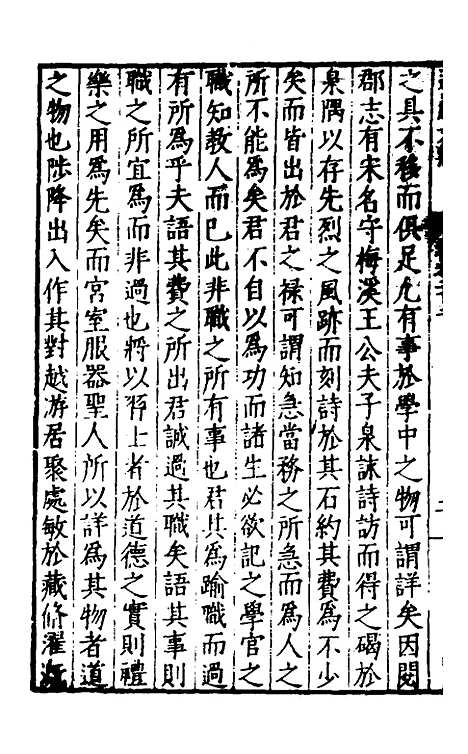 之具不移而俱足凡有事於學中之物可謂詳矣因閱
郡志有宋名守梅溪王公夫子泉詠詩訪而得之碣於
泉隅以存先烈之風跡而刻詩於其石約其費爲不少
矣而皆出於君之祿可謂知急當務之所急而爲人之
所不能爲矣君不自以爲功而諸生必欲記之學官之
職知教人而已此非職之所有事也君其爲踰職而過
有所爲乎夫語其費之所出君誠過其職矣語其事則
職之所宜爲而非過也將以羿上者於道德之實則禮
樂之用爲先矣而宮室服器聖人所以詳爲其物者道
之物也陟降出入作其對越游居聚處敏於藏脩濯